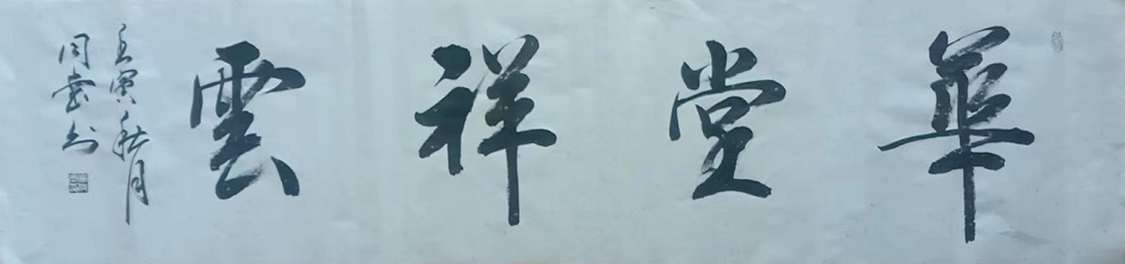 華堂祥雲
壬寅秋月
周雲书